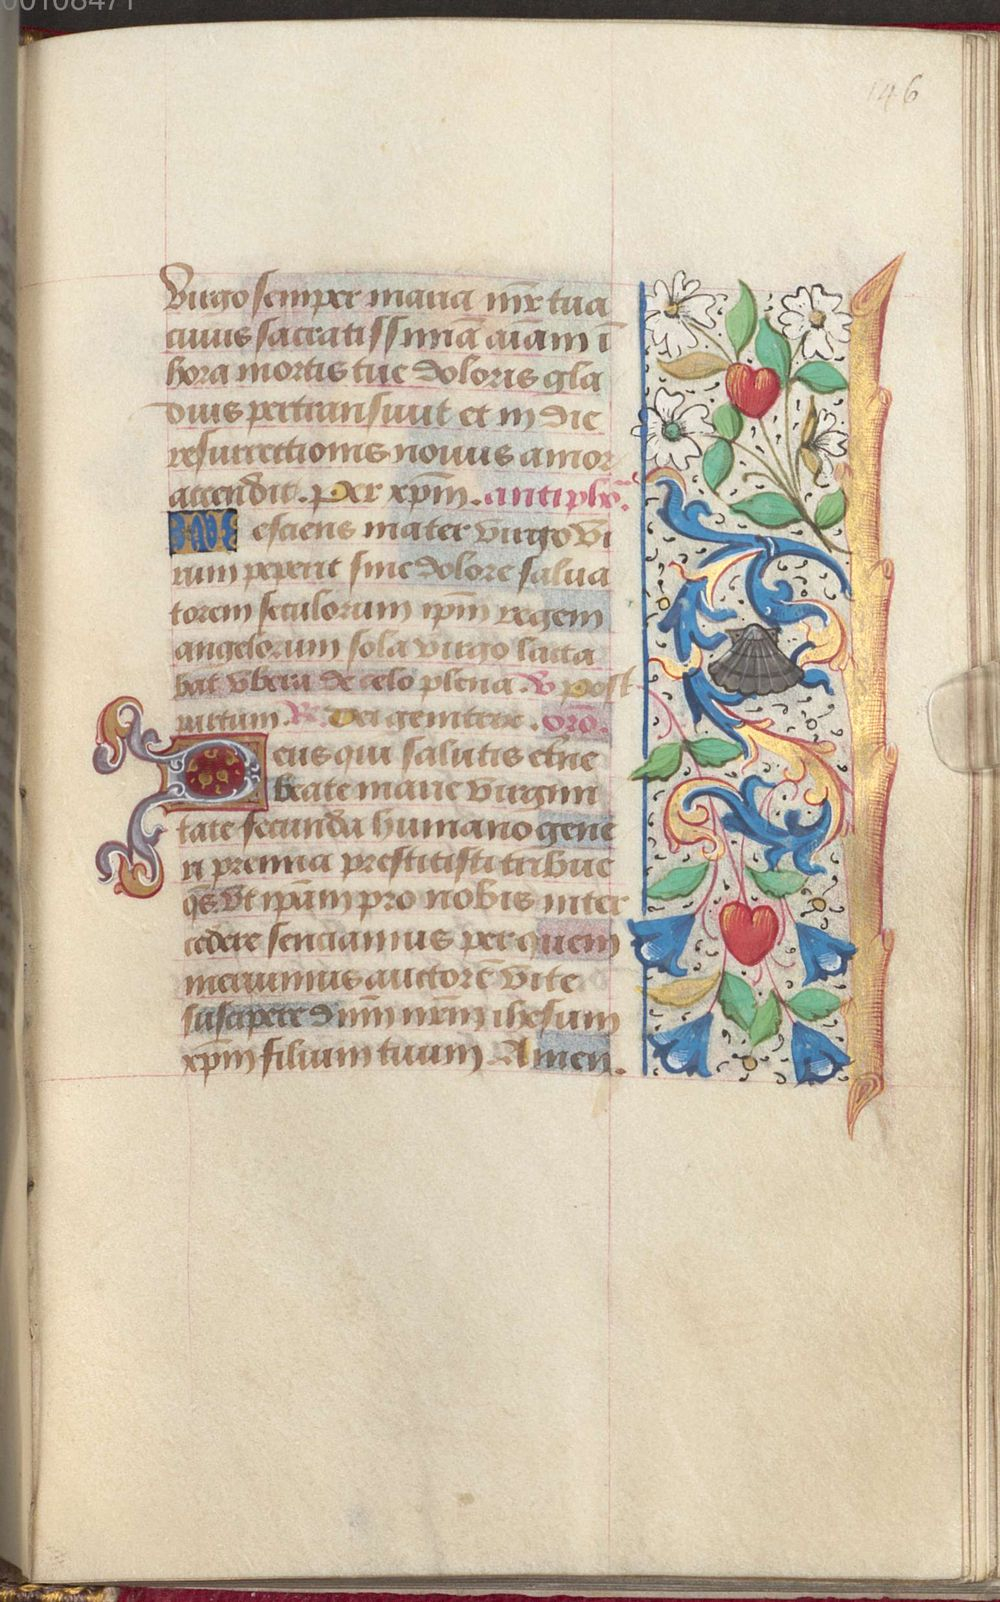 00108471
146
Virgo semper maria mr̄ tua
cuius sacratissimā aīam ī
hora mortis tue doloris gla
dius pertransiuit et in die
resurrectionis nouus amor
accendit. Per xp̄m. antiphō.
Nesciens mater virgo vi
rum peperit sine dolore salua
torem seculorum ipm̄ regem
angelorum sola virgo lacta
bat vbera de celo plena. V̄ Post
partum. R̄. Dei genitrix. orō.
Deus qui salutis etn̄e
beate marie virgini
tate fecunda humano gene
ri premia prestitisti tribue
qs̄. vt ipām pro nobis inter
cedere senciamus per quem
meruimus auctorē vite
suscipere dnm̄ nrm̄ ihesum
xp̄m filium tuum. Amen.